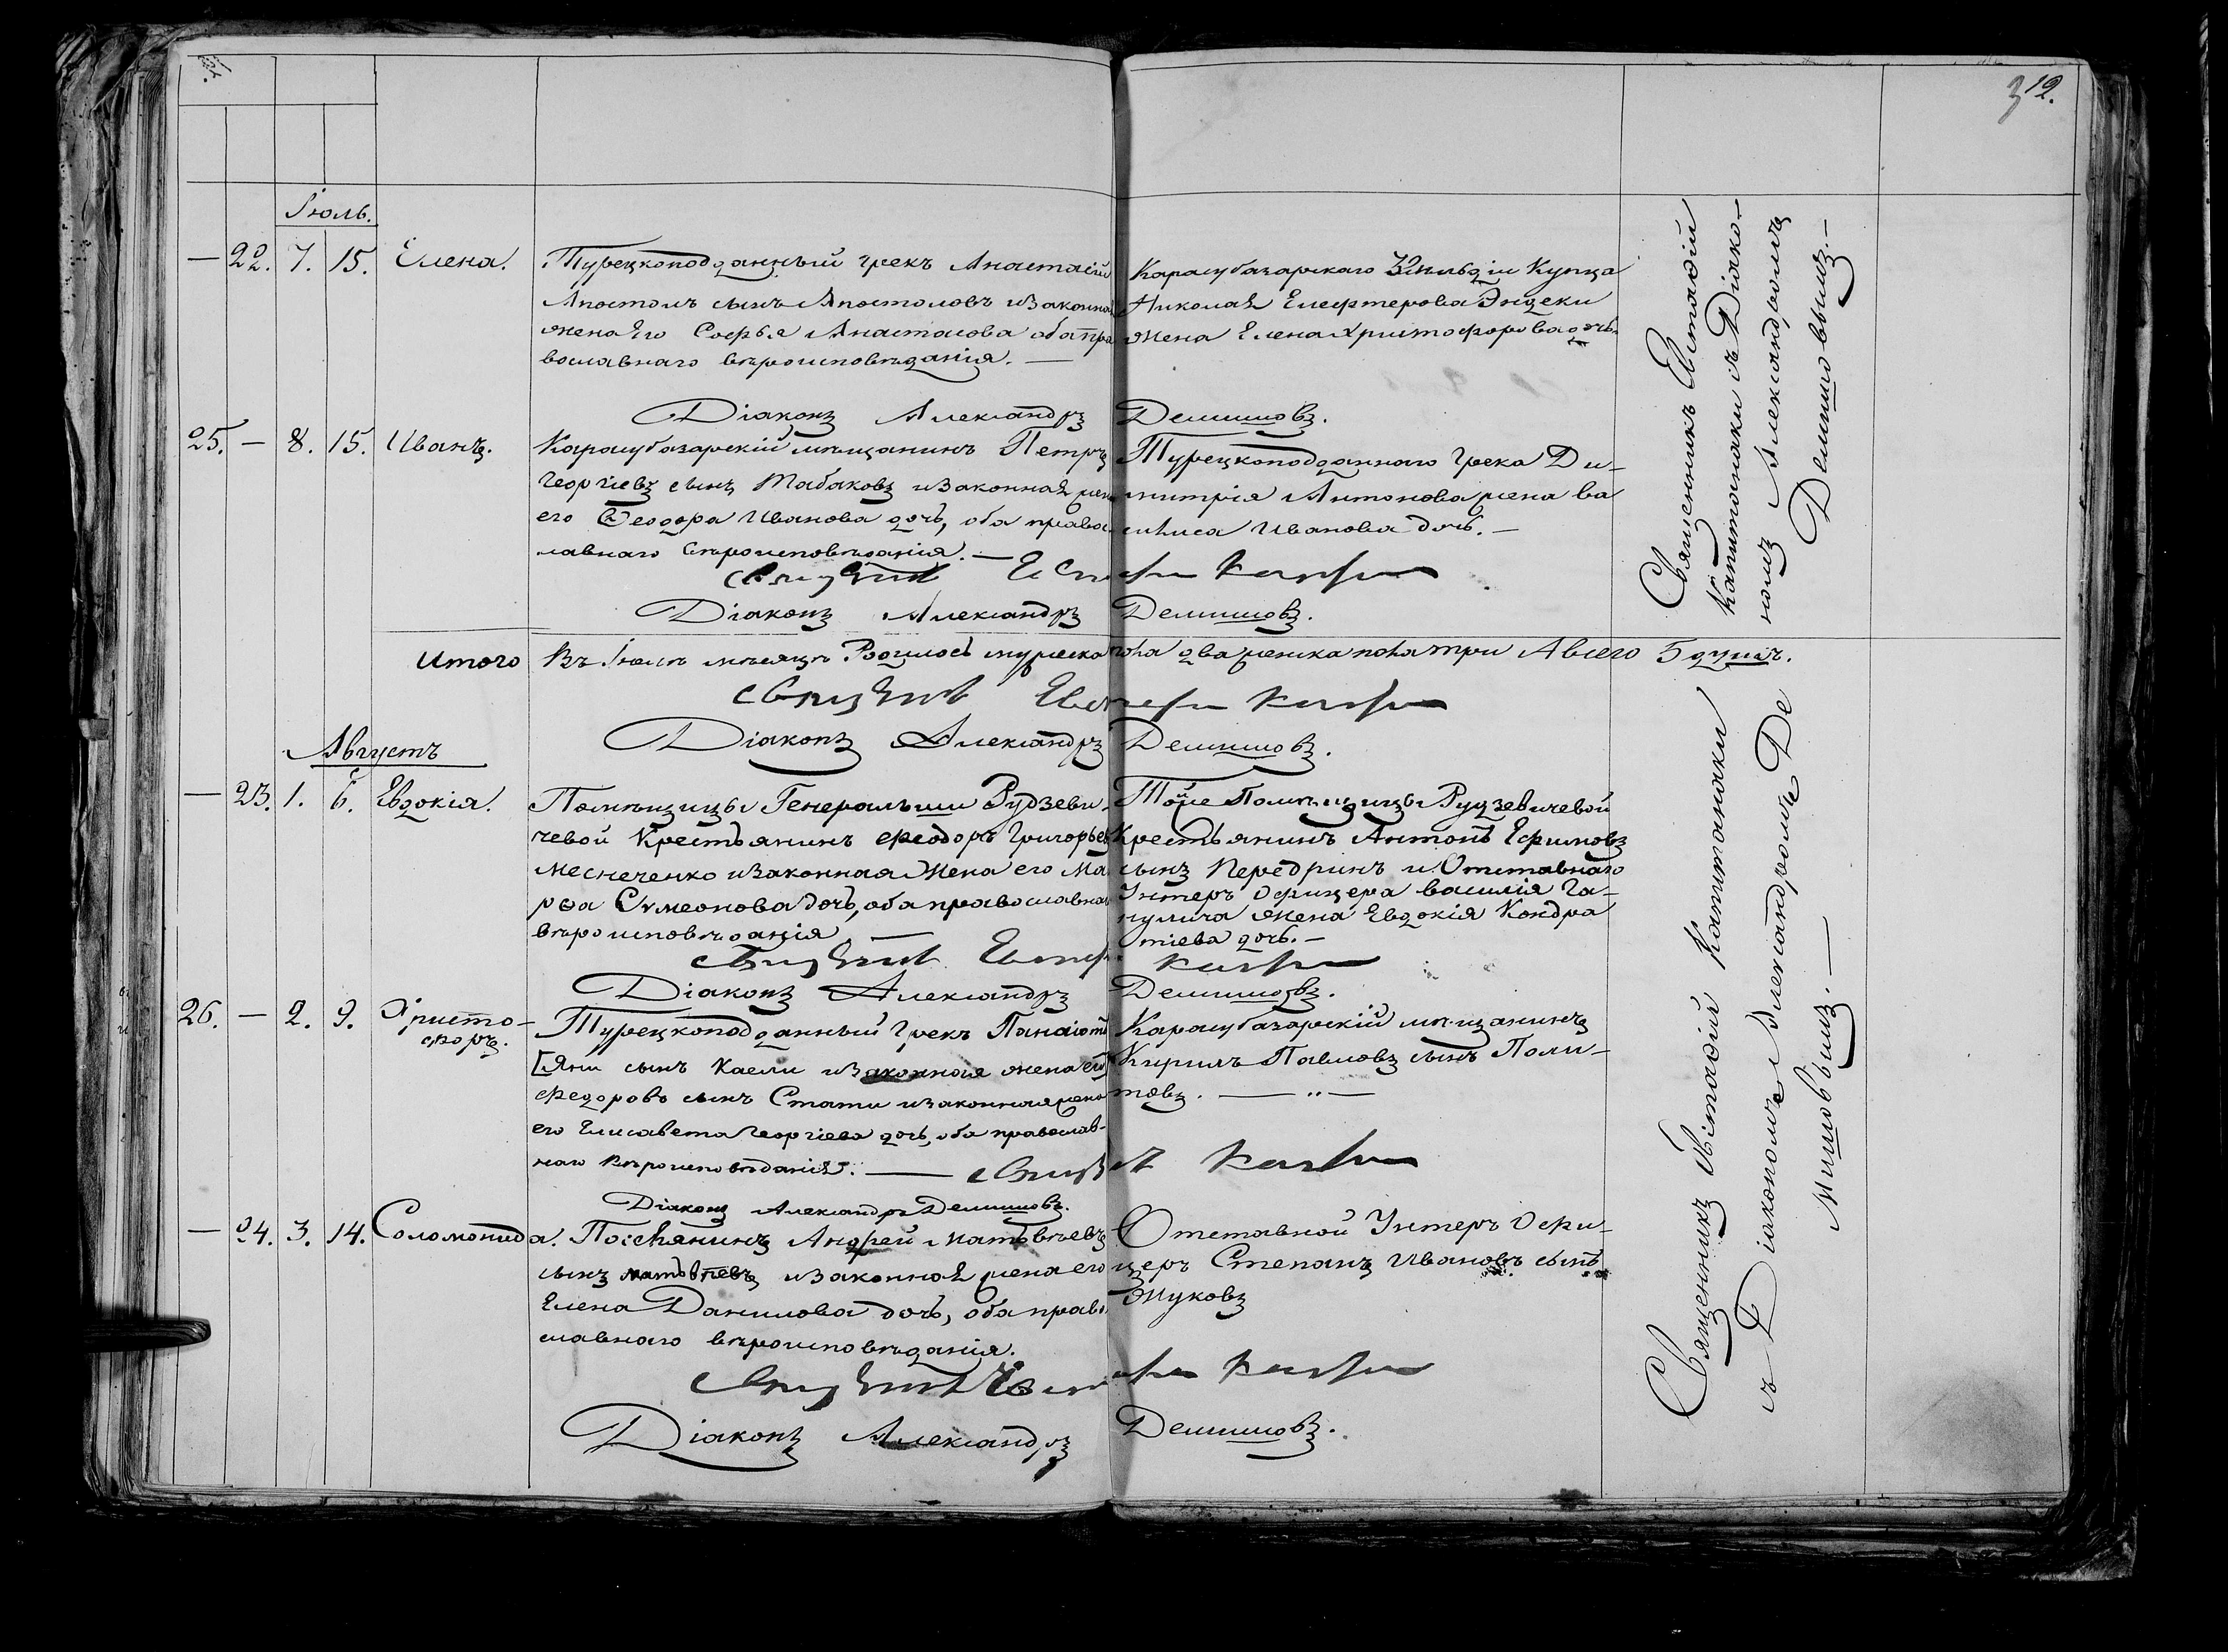 312.
Іюль.
— 22. 7. 15. Елена.
Турецкоподданный грекъ Анастасій
Апостолъ сынъ Апостоловъ и законная
жена Его Софья Анастасова оба пра
вославнаго вѣроисповѣданія. —
Карасубазарскаго 3 Гильдіи Купца
Николая Елефтерова
жена Елена Христофорова дочь.
Діаконъ Александръ Демишовъ.
25. — 8. 15. Иванъ.
Карасубазарскій мѣщанинъ Петръ
Георгіевъ сынъ Табаковъ и законная жена
его Ѳеодора Иванова дочь, оба правос
лавнаго вѣроисповѣданія. —
Турецкоподданнаго Грека Ди-
митрія Антонова жена Ва
силиса Иванова дочь. —
Діаконъ Александръ Демишовъ.
Священникъ Евстафій
Капитанаки съ Діако-
номъ Александромъ
Демишовымъ. —
Итого Въ Іюлѣ мѣсяцѣ Родилось мужеска пола два женска пола три А всего 5 душъ.
Діаконъ Александръ Демишовъ.
Августъ
— 23. 1. 6. Евдокія.
Помѣщицы Генеральши Рудзеви-
чевой Крестьянинъ Феодоръ Григорьевъ
Меснеченко и законная Жена его Ма
рѳа Сѵмеонова дочь, оба православнаго
вѣроисповѣданія —
Той же Помѣщицы Рудзевичевой
Крестьянинъ Антонъ Ефимовъ
сынъ Передринъ и Отставнаго
Унтеръ Офицера Василія Га-
нулича жена Евдокія Кондра
тіева дочь. —
Діаконъ Александръ Демишовъ.
26. — 2. 9. Христо-
форъ.
Турецкоподданный Грекъ Панаіотъ
[Яни сынъ Каели и законная жена его]
Федоровъ сынъ Стати и законная жена
его Елисавета Георгіева дочь, оба православ-
наго Вѣроисповѣданія. —
Карасубазарскій мѣщанинъ
Кирилъ Павловъ сынъ Поли-
товъ. — „ —
Діаконъ Александръ Демишовъ.
— 24. 3. 14. Соломонида.
Поселянинъ Андрей Матвѣевъ
сынъ Матвѣевъ и законная жена его
Елена Данилова дочь, оба право
славнаго вѣроисповѣданія.
Отставной Унтеръ Офи-
церъ Степанъ Ивановъ сынъ
Жуковъ
Діаконъ Александръ Демишовъ.
Священникъ Евстафій Капитанаки
съ Діакономъ Александромъ Де
мишовымъ. —